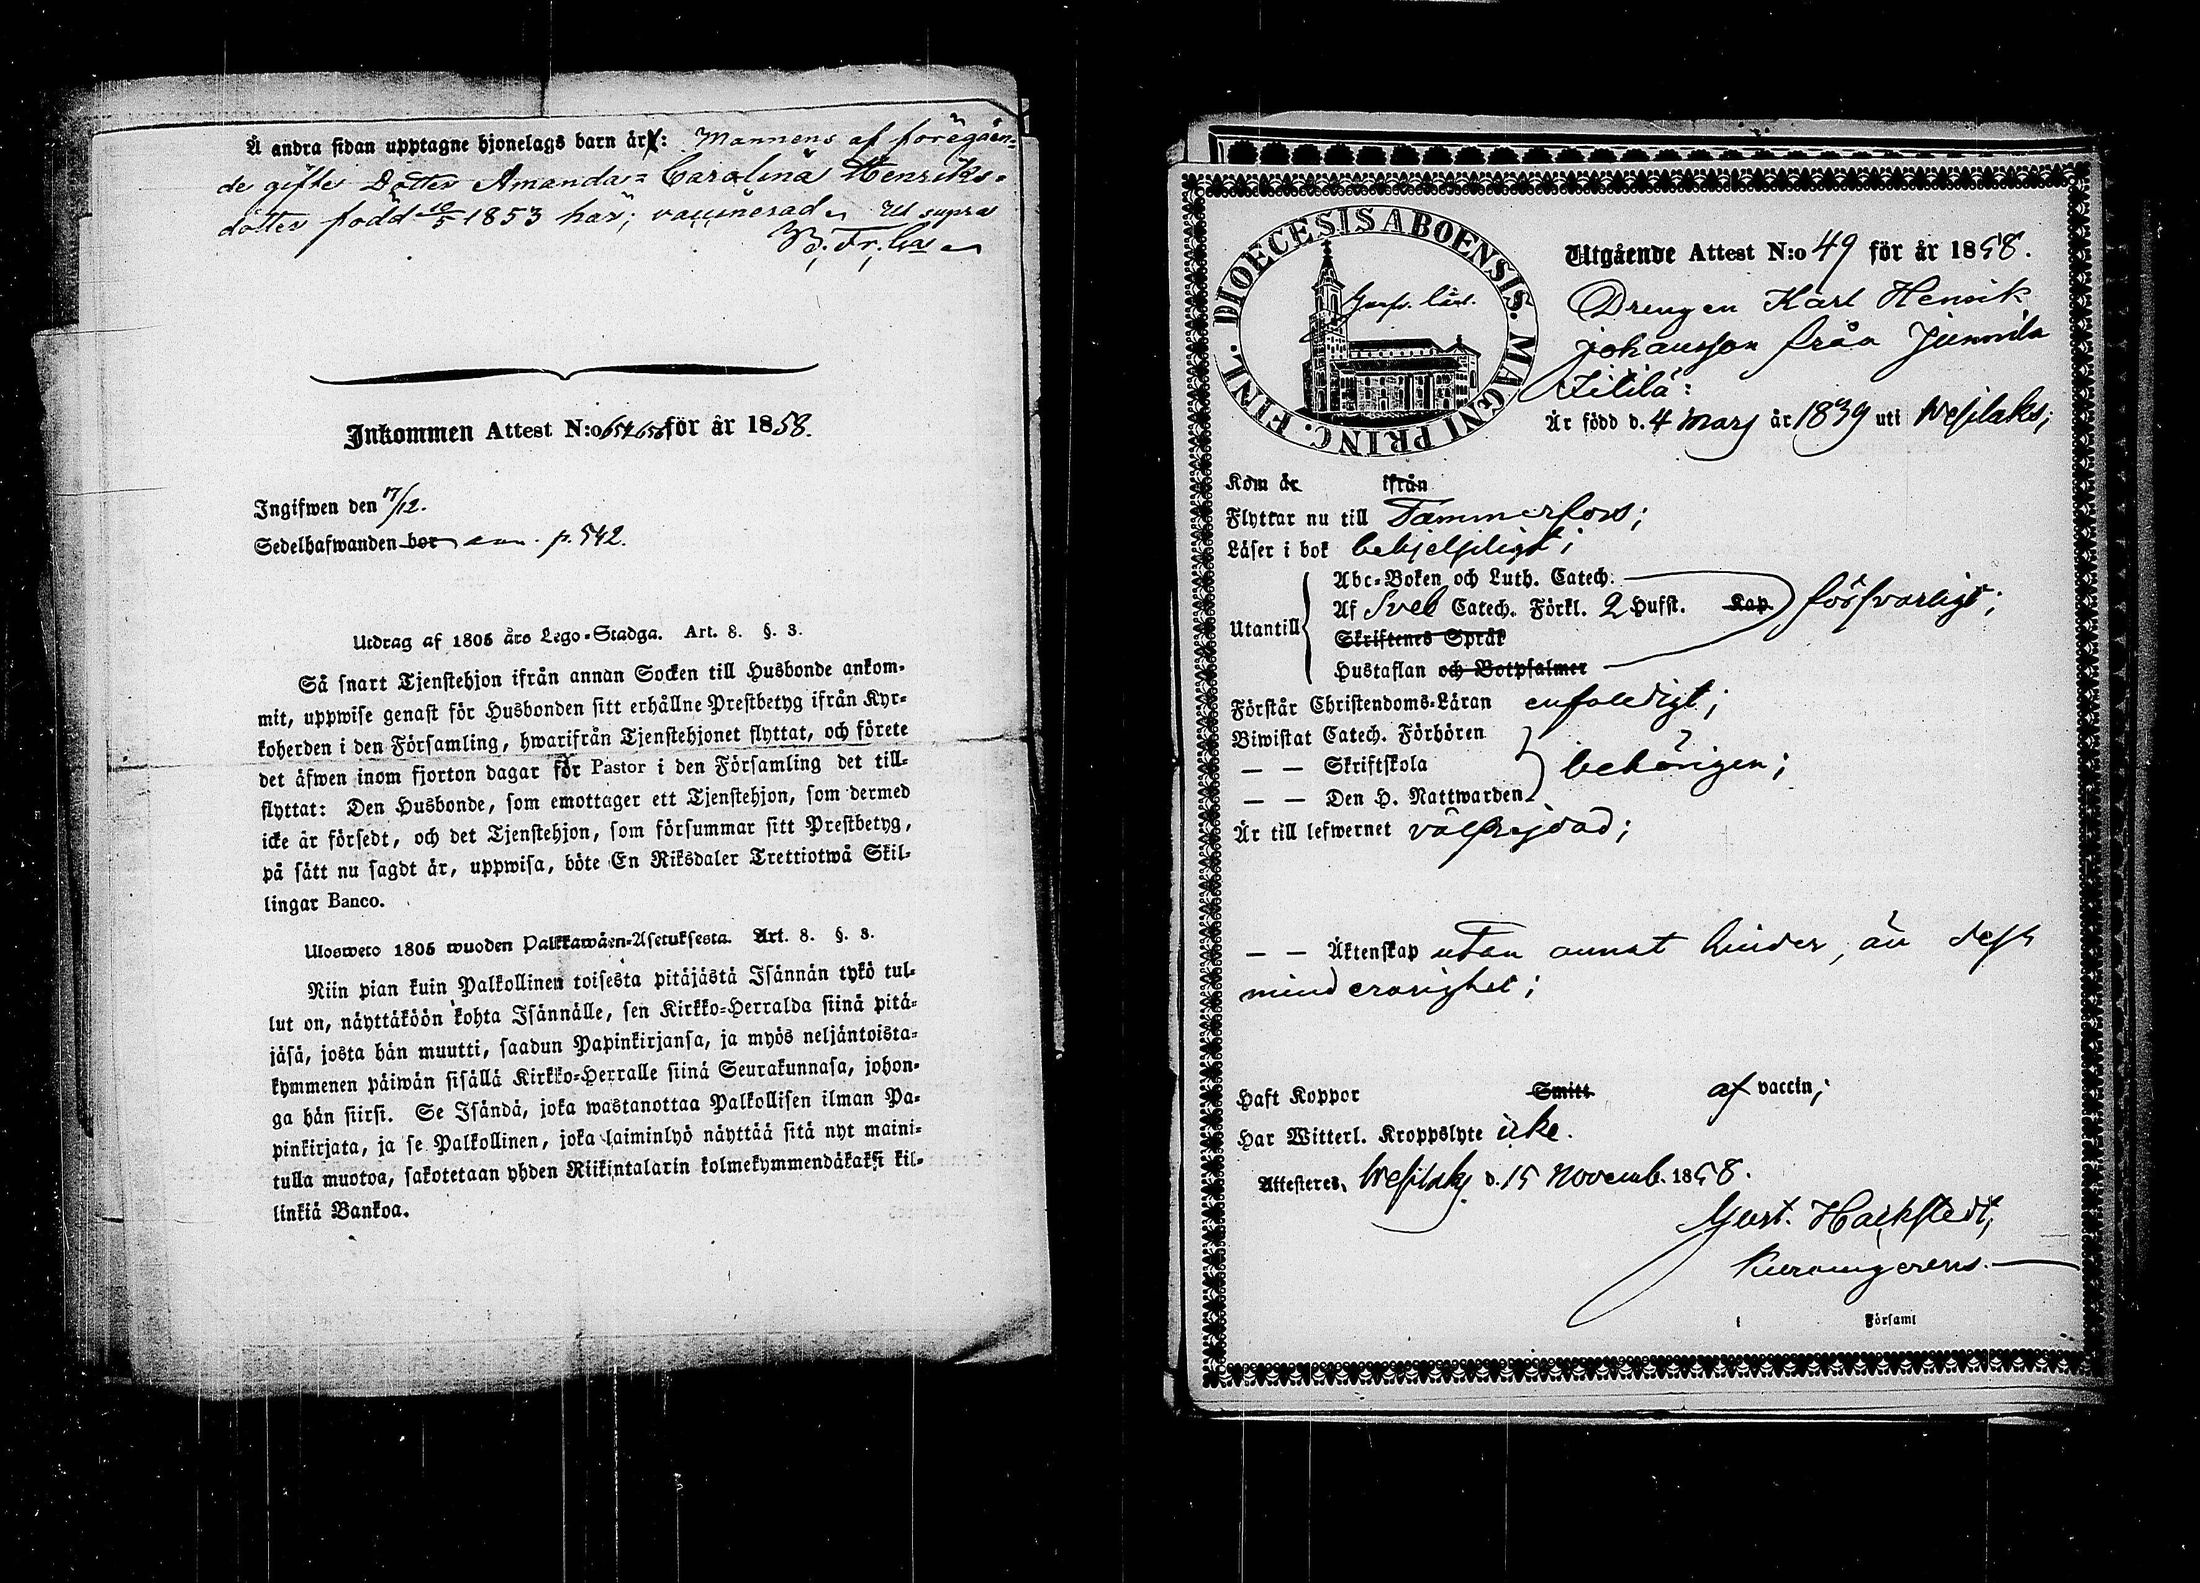 Å andra sidan upptagne hjonelags barn är: Mannens af föregåen-
de gifte Dotter Amanda-Carolina Henriks-
dotter född 10/5 1853 här; vaccinerad. Ut supra
Inkommen Attest N:o 654 656 för år 1858.
Ingifwen den 17/12.
Sedelhafwanden bor ann. p. 542.
Utdrag af 1805 års Lego-Stadga. Art. 8. §. 3.
Så snart Tjenstehjon ifrån annan Socken till Husbonde ankom-
mit, uppwise genast för Husbonden sitt erhållne Prestbetyg ifrån Kyr-
koherden i den Församling, hwarifrån Tjenstehjonet flyttat, och förete
det äfwen inom fjorton dagar för Pastor i den Församling det till-
flyttat: Den Husbonde, som emottager ett Tjenstehjon, som dermed
icke är försedt, och det Tjenstehjon, som försummar sitt Prestbetyg,
på sätt nu sagdt är, uppwisa, böte En Riksdaler Trettiotwå Skil-
lingar Banco.
Ulosweto 1805 wuoden Palkkawäen-Asetuksesta. Art. 8. §. 3.
Niin pian kuin Palkollinen toisesta pitäjästä Isännän tykö tul-
lut on, näyttäköön kohta Isännälle, sen Kirkko-Herralda siinä pitä-
jäsä, josta hän muutti, saadun Papinkirjansa, ja myös neljäntoista-
kymmenen päiwän sisällä Kirkko-Herralle siinä Seurakunnasa, johon-
ga hän siirsi. Se Isändä, joka wastanottaa Palkollisen ilman Pa-
pinkirjata, ja se Palkollinen, joka laiminlyö näyttää sitä nyt maini-
tulla muotoa, sakotetaan yhden Riikintalarin kolmekymmendäkaksi kil-
linkiä Bankoa.
DIOECESIS ABOENSIS. MAGNI PRINC. FINL.
Utgående Attest N:o 49 för år 1858.
Drengen Karl Henrik
Johansson från Junnila
Är född d. 4 Mars år 1839 uti Wesilaks;
Kom år ifrån
Flyttar nu till Tammerfors;
Läser i bok behjelpligt;
Abc-Boken och Luth. Catech.
Utantill Af Sveb Catech. Förkl. 2 Hufst. Kap. försvarligt;
Skriftenes Språk
Hustaflan och Botpsalmer
Förstår Christendoms-Läran enfaldigt;
Biwistat Catech. Förhören
— — Skriftskola behörigen;
— — Den H. Nattwarden
Är till lefwernet välfrejdad;
— — Äktenskap utan annat hinder, än dess
minderårighet;
Haft Koppor Smitt af vaccin;
Har Witterl. Kroppslyte icke.
Attesteres, Wesilaks d. 15 Novemb. 1858.
Gust. Hackstedt,
i Församl